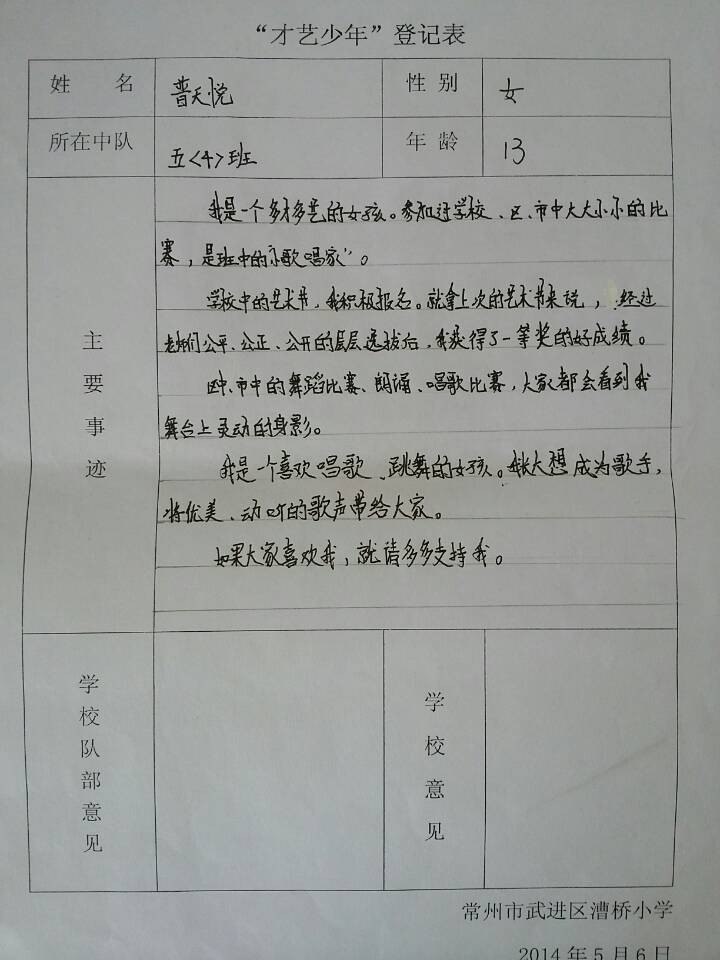 “才艺少年”登记表
姓 名 普天悦 性 别 女
所在中队 五<4>班 年 龄 13
主要事迹
我是一个多才多艺的女孩。参加过学校、区、市中大大小小的比
赛，是班中的“小歌唱家”。
学校中的艺术节，我积极报名。就拿上次的艺术节来说，经过
老师们公平、公正、公开的层层选拔后，我获得了一等奖的好成绩。
区中、市中的舞蹈比赛、朗诵、唱歌比赛，大家都会看到我
舞台上灵动的身影。
我是一个喜欢唱歌、跳舞的女孩。长大想成为歌手，
将优美、动听的歌声带给大家。
如果大家喜欢我，就请多多支持我。
学校队部意见
学校意见
常州市武进区漕桥小学
2014年5月6日